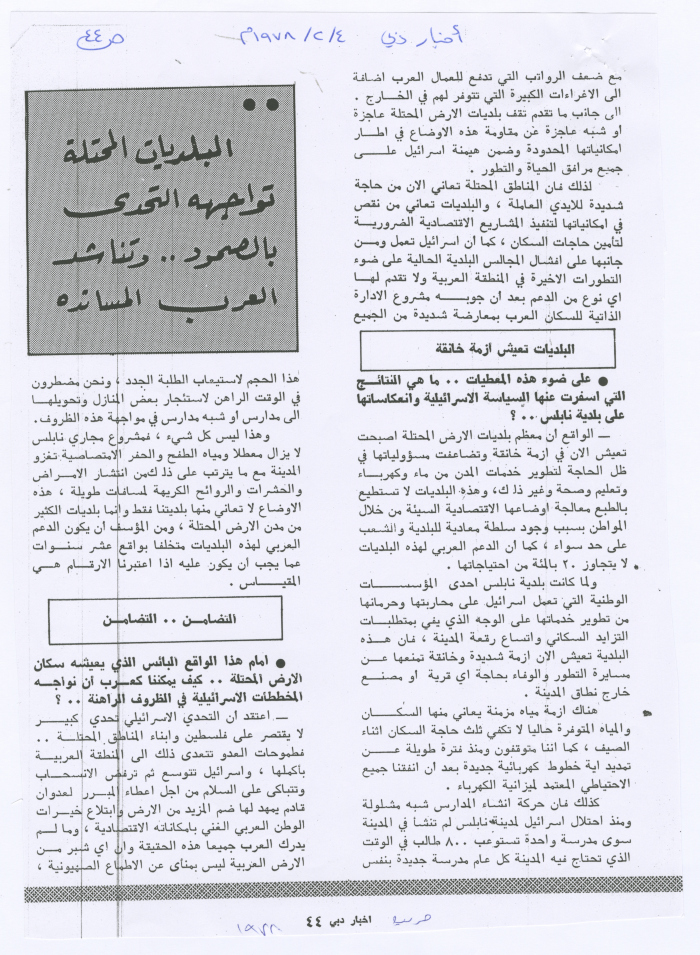 أخبار دبي ١٩٧٨/٢/٤م
ص٤٤
مع ضعف الرواتب التي تدفع للعمال العرب اضافة
الى الاغراءات الكبيرة التي تتوفر لهم في الخارج .
الى جانب ما تقدم تقف بلديات الارض المحتلة عاجزة
او شبه عاجزة عن مقاومة هذه الاوضاع في اطار
امكانياتها المحدودة وضمن هيمنة اسرائيل على
جميع مرافق الحياة والتطور .
لذلك فان المناطق المحتلة تعاني الان من حاجة
شديدة للايدي العاملة ، والبلديات تعاني من نقص
في امكانياتها لتنفيذ المشاريع الاقتصادية الضرورية
لتامين حاجات السكان ، كما ان اسرائيل تعمل ومن
جانبها على افشال المجالس البلدية الحالية على ضوء
التطورات الاخيرة في المنطقة العربية ولا تقدم لها
اي نوع من الدعم بعد ان جوبه مشروع الادارة
الذاتية للسكان العرب بمعارضة شديدة من الجميع
البلديات تعيش ازمة خانقة
● على ضوء هذه المعطيات .. ما هي النتائج
التي اسفرت عنها السياسة الاسرائيلية وانعكاساتها
على بلدية نابلس .. ؟
ــ الواقع ان معظم بلديات الارض المحتلة اصبحت
تعيش الان في ازمة خانقة وتضاعفت مسؤولياتها في
ظل الحاجة لتطوير خدمات المدن من ماء وكهرباء
وتعليم وصحة وغير ذلك، وهذه البلديات لا تستطيع
بالطبع معالجة اوضاعها الاقتصادية السيئة من خلال
المواطن بسبب وجود سلطة معادية للبلدية والشعب
على حد سواء ، كما ان الدعم العربي لهذه البلديات
لا يتجاوز ٢٠ بالمئة من احتياجاتها .
ولما كانت بلدية نابلس احدى المؤسسات
الوطنية التي تعمل اسرائيل على محاربتها وحرمانها
من تطوير خدماتها على الوجه الذي يفي بمتطلبات
التزايد السكاني واتساع رقعة المدينة ، فان هذه
البلدية تعيش الان ازمة شديدة وخانقة تمنعها عن
مسايرة التطور والوفاء بحاجة اي قرية او مصنع
خارج نطاق المدينة .
هناك ازمة مياه مزمنة يعاني منها السكان
والمياه المتوفرة حاليا لا تكفي ثلث حاجة السكان اثناء
الصيف ، كما اننا متوقفون ومنذ فترة طويلة عن
تمديد اية خطوط كهربائية جديدة بعد ان انفقنا جميع
الاحتياطي المعتمد لميزانية الكهرباء .
كذلك فان حركة انشاء المدارس شبه مشلولة
ومنذ احتلال اسرائيل لمدينة نابلس لم تنشأ في المدينة
سوى مدرسة واحدة تستوعب ٨٠٠ طالب في الوقت
الذي تحتاج فيه المدينة كل عام مدرسة جديدة بنفس
البلديات المحتلة
تواجهه التحدى
بالصمود .. وتناشد
العرب المسانده
هذا الحجم لاستيعاب الطلبة الجدد ، ونحن مضطرون
في الوقت الراهن لاستئجار بعض المنازل وتحويلها
الى مدارس او شبه مدارس في مواجهة هذه الظروف.
وهذا ليس كل شيء ، فمشروع مجاري نابلس
لا يزال معطلا ومياه الطفح والحفر الامتصاصية تغزو
المدينة مع ما يترتب على ذلك من انتشار الامراض
والحشرات والروائح الكريهة لمسافات طويلة ، هذه
الاوضاع لا تعاني منها بلديتنا فقط وانما بلديات الكثير
من مدن الارض المحتلة ، ومن المؤسف ان يكون الدعم
العربي لهذه البلديات متخلفا بواقع عشر سنوات
عما يجب ان يكون عليه اذا اعتبرنا الارقام هي
المقياس .
التضامن .. التضامن
● امام هذا الواقع البائس الذي يعيشه سكان
الارض المحتلة .. كيف يمكننا كعرب ان نواجه
المخططات الاسرائيلية في الظروف الراهنة .. ؟
ــ اعتقد ان التحدي الاسرائيلي تحدي كبير
لا يقتصر على فلسطين وابناء المناطق المحتلة ..
فطموحات العدو تتعدى ذلك الى المنطقة العربية
بأكملها ، واسرائيل تتوسع ثم ترفض الانسحاب
وتتباكى على السلام من اجل اعطاء المبرر لعدوان
قادم يمهد لها ضم المزيد من الارض وابتلاع خيرات
الوطن العربي الغني بامكاناته الاقتصادية ، وما لم
يدرك العرب جميعا هذه الحقيقة وان اي شبر من
الارض العربية ليس بمنأى عن الاطماع الصهيونية ،
اخبار دبي ٤٤